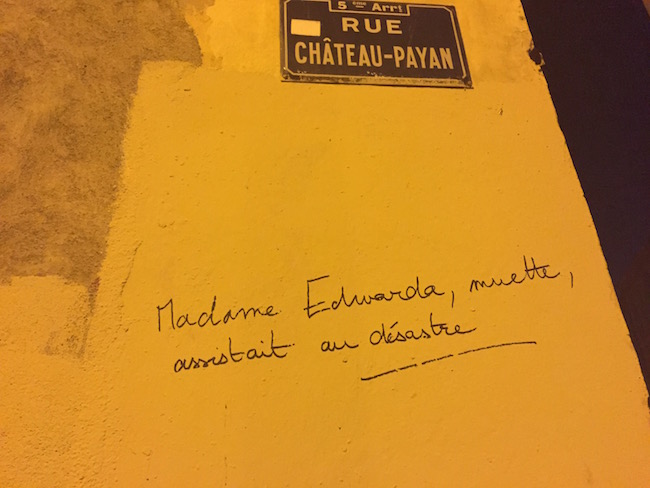 5ème Arrt
RUE
CHÂTEAU-PAYAN
Madame Edwarda, muette,
assistait au désastre